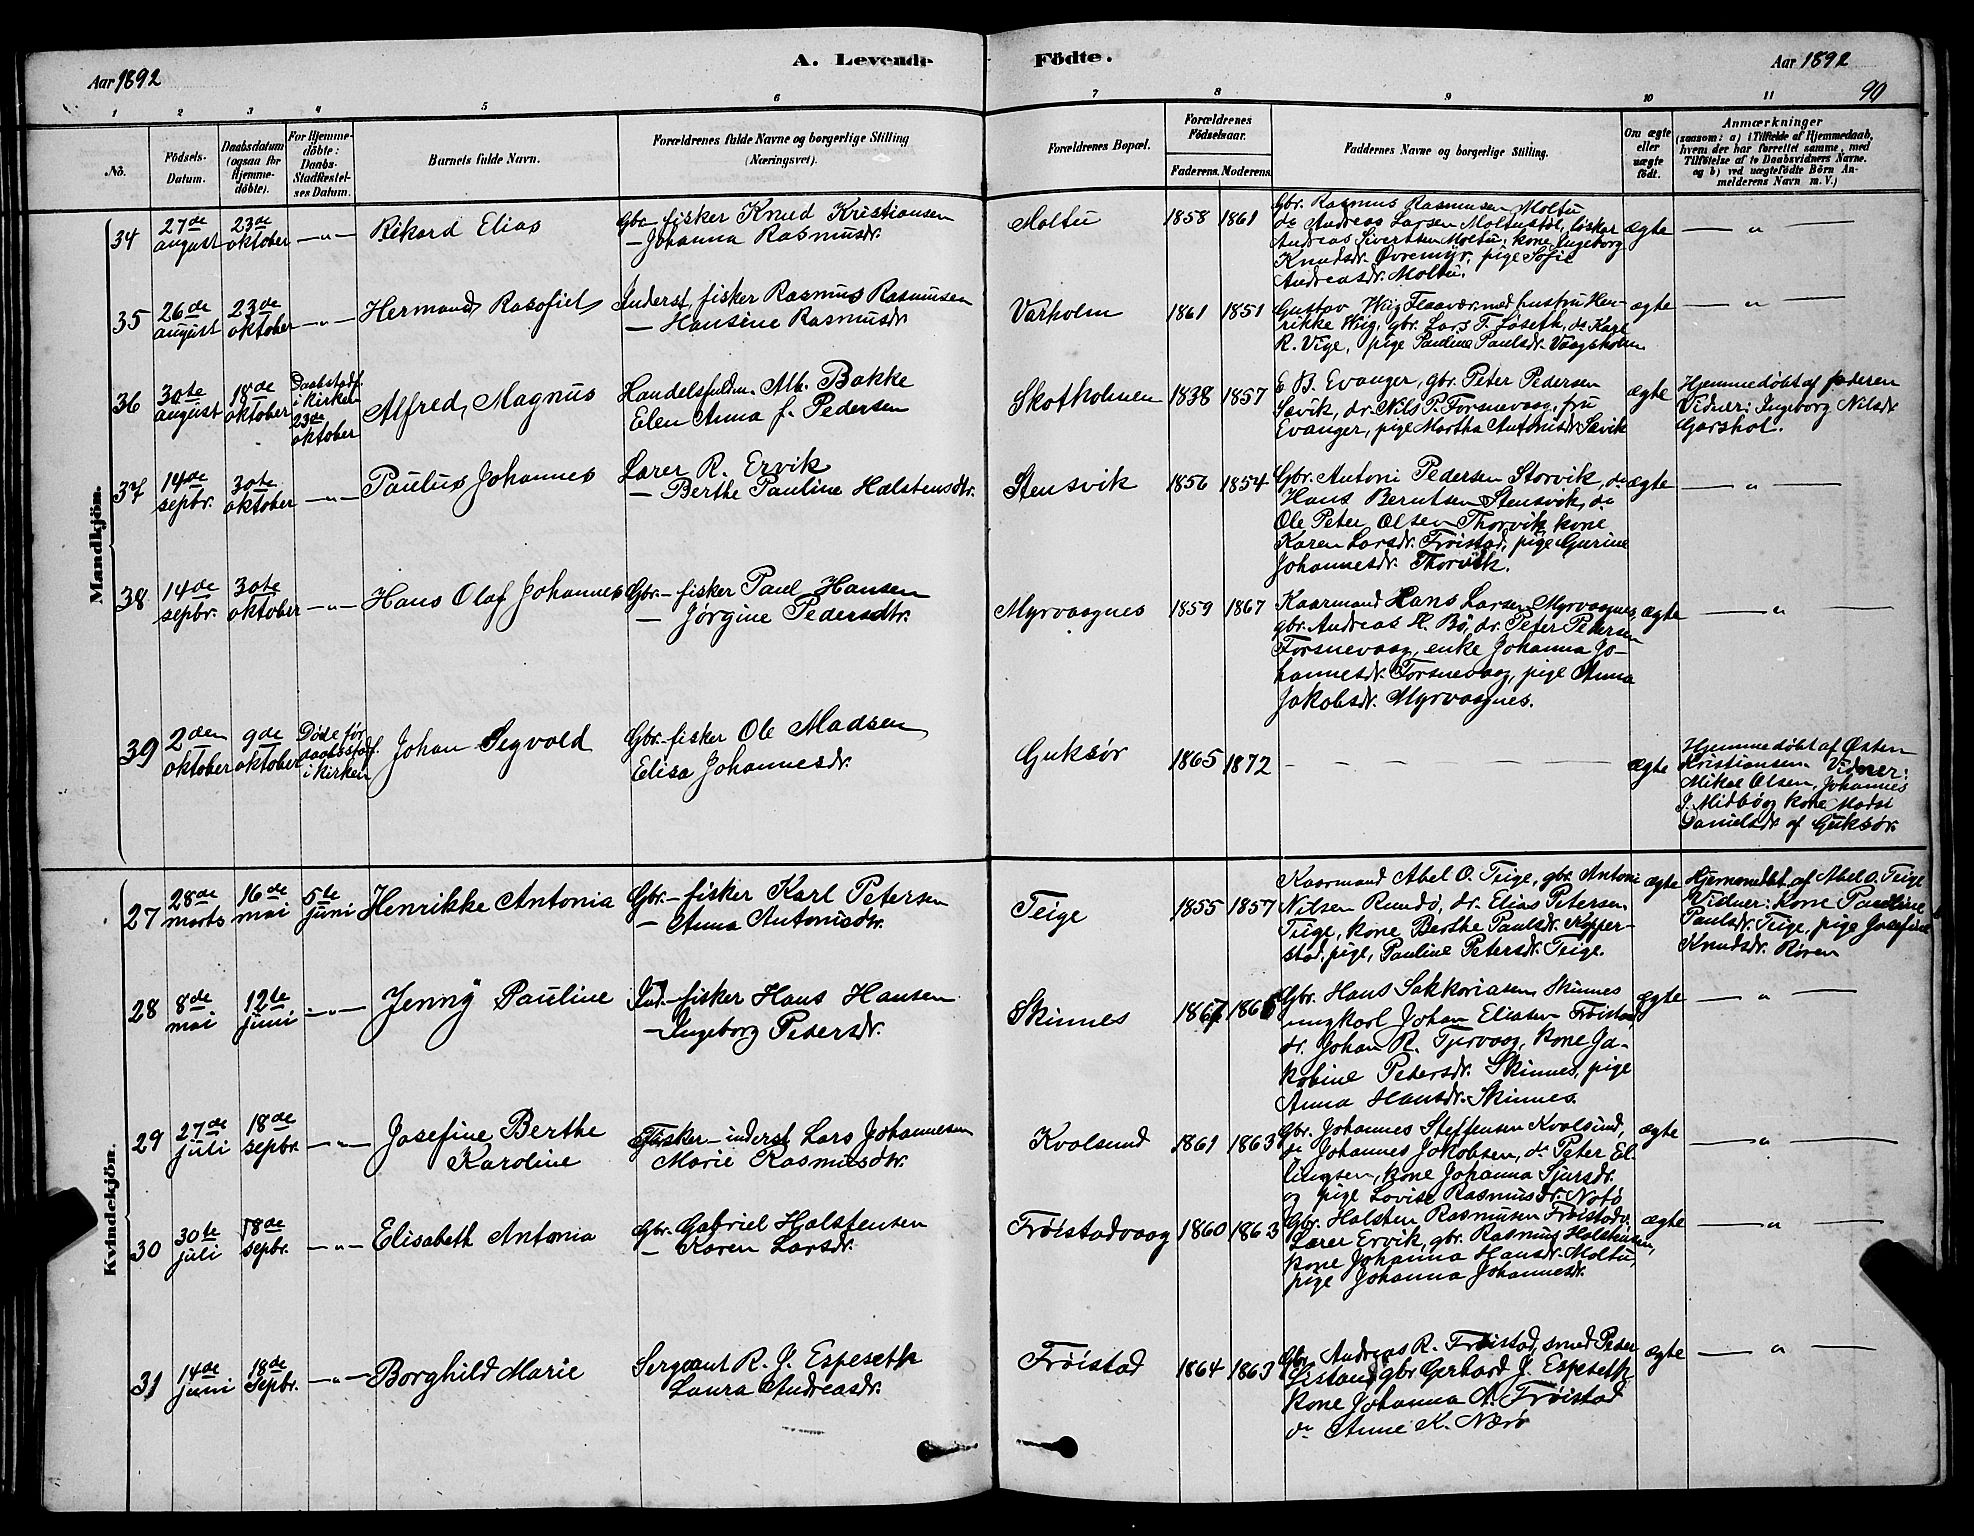 Aar 1892
A. Levende
Födte.
Aar 1892
90
1 2 3 4 5 6 7 8 9 10 11
No.
Födsels-
Datum.
Daabsdatum
(ogsaa for
hjemme-
döbte).
For Hjemme-
döbte:
Daabs-
Stadfæstel-
ses Datum.
Barnets fulde Navn.
Forældrenes fulde Navne og borgerlige Stilling
(Næringsvei).
Forældrenes Bopæl.
Forældrenes
Födselsaar.
Faderens. Moderens.
Faddernes Navne og borgerlige Stilling.
Om ægte
eller
uægte
födt.
Anmærkninger
(saasom: a) i Tilfælde af Hjemmedaab,
hvem der har forrettet samme, med
Tilföielse af to Daabsvidners Navne.
og b) ved uægtefödte Börn An-
melderens Navn m. V.)
Mandkjön.
34
27de
august
23de
oktober
— „ —
Rikard Elias
Gbr.- fisker Knud Kristiansen
— Johanna Rasmusdr.
Moltu
1858 1861
Gbr. Rasmus Rasmussen Moltu
do Andreas Larsen Moltustøl, fisker
Andreas Sivertsen Moltu, kone Ingeborg
Knudsdr. Øvremyr, pige Sofie
Andreasdr. Moltu.
ægte
— „ —
35
26de
august
23de
oktober
— „ —
Hermand Rasofiel
Inderst, fisker Rasmus Rasmusen
— Hansine Rasmusdr
Varholm
1861 1851
Gustav Wiig Flaavær med hustru Hen-
rikke Wiig, gbr. Lars T. Løseth, do Kage
R. Vige, pige Pauline Paulsdr. Vaagsholm
ægte
— „ —
36
30te
august
18de
oktober
Daabstadf.
i kirken
23de
oktober
Alfred, Magnus
Handelsfuldm. Alb. Bakke
Elen Anna f. Pedersen
Skotholmen
1838 1857
E. B. Evanger, gbr. Peter Pedersen
Sævik, dr. Nils P. Forsnevaag, fru
Evanger, pige Martha Antonisdr. Sævik
ægte
Hjemmedøbt af faderen
Vidner: Ingeborg Nilsdr
Garshol.
37
14de
sepbr.
30te
oktober
— „ —
Paulus Johannes
Lærer R. Ervik
— Berthe Pauline Halstensdtr.
Stensvik
1856 1854
Gbr. Antoni Pedersen Storvik, do
Hans Berntsen Stensvik, do
Ole Peter Olsen Thorvik kone
Karen Larsdr. Frøistad, pige Gurine
Johannesdr. Thorvik.
ægte
— „ —
38
14de
sepbr.
30te
oktober
— „ —
Hans Olaf Johannes
Gbr.- fisker Paul Hansen
— Jørgine Pedersdtr.
Myrvaagnes
1859 1867
Kaarmand Hans Larsen Myrvaagnes,
gbr. Andreas H. Bø, dr. Peter Petersen
Forsnevaag, enke Johanna Jo-
hannesdr. Forsnevaag, pige Anna
Jakobsdr. Myrvaagnes.
ægte
— „ —
39
2den
oktober
9de
oktober
Døde før
daabsstadf.
i kirken
Johan Segvald
Gbr.- fisker Ole Madsen
Elisa Johannesdr.
Guksør
1865 1872
— — — — — —
ægte
Hjemmedøbt af Østen
Kristiansen. Vidner:
Mikal Olsen, Johannes
J. Midbø og kone Madsi
Danielsdr af Guksør.
Kvindekjön.
27
28de
marts
16de
mai
5te
juni
Henrikke Antonia
Gbr.- fisker Karl Petersen
— Anna Antonisdtr.
Teige
1855 1857
Kaarmand Abel O. Teige, gbr. Antoni
Nilsen Rundø, dr. Elias Petersen
Teige, kone Berthe Paulsdr. Kopper-
stad, pige, Pauline Petersdr. Teige.
ægte
Hjemmedbt. af Abel O. Teige
Vidner: Kone Pauline
Paulsdr. Teige, pige Josefine
Knudsdr. Røren
28
8de
mai
12te
juni
— „ —
Jenny Pauline
Ind.- fisker Hans Hansen
— Ingeborg Pedersdr.
Skinnes
1867 1865
Gbr. Hans Sakkariasen Skinnes
ungkarl Johan Eliasen Frøistad,
dr. Johan R. Tjervaag, kone Ja-
kobine Petersdr. Skinnes, pige
Anna Hansdr. Skinnes
ægte
— „ —
29
27de
juli
18de
sepbr.
— „ —
Josefine Berthe
Karoline
Fisker- inderst Lars Johannesen
Marie Rasmusdtr.
Kvalsund
1861 1863
Gbr. Johannes Steffensen Kvalsund,
do Johannes Jakobsen, do Peter El-
lingsen, kone Johanna Sjursdr.
og pige Lovise Rasmusdr. Notø
ægte
— „ —
30
30te
juli
18de
sepbr.
— „ —
Elisabeth Antonia
Gbr. Gabriel Halstensen
— Karen Larsdr.
Frøistadvaag
1860 1863
Gbr. Halsten Rasmusen Frøistadv.
Lærer Ervik, gbr. Rasmus Halstensen,
kone Johanna Hansdr. Moltu,
pige Johanna Johannesdr.
ægte
— „ —
31
14de
juni
18de
sepbr.
— „ —
Borghild Marie
Sergeant R. J. Espeseth
Laura Andreasdr.
Frøistad
1864 1863
Gbr. Andreas R. Frøistad, smed Peter
gbr Gerhard J. Espeseth
kone Johanna A. Frøistad
do Anne K. Nærø
ægte
— „ —